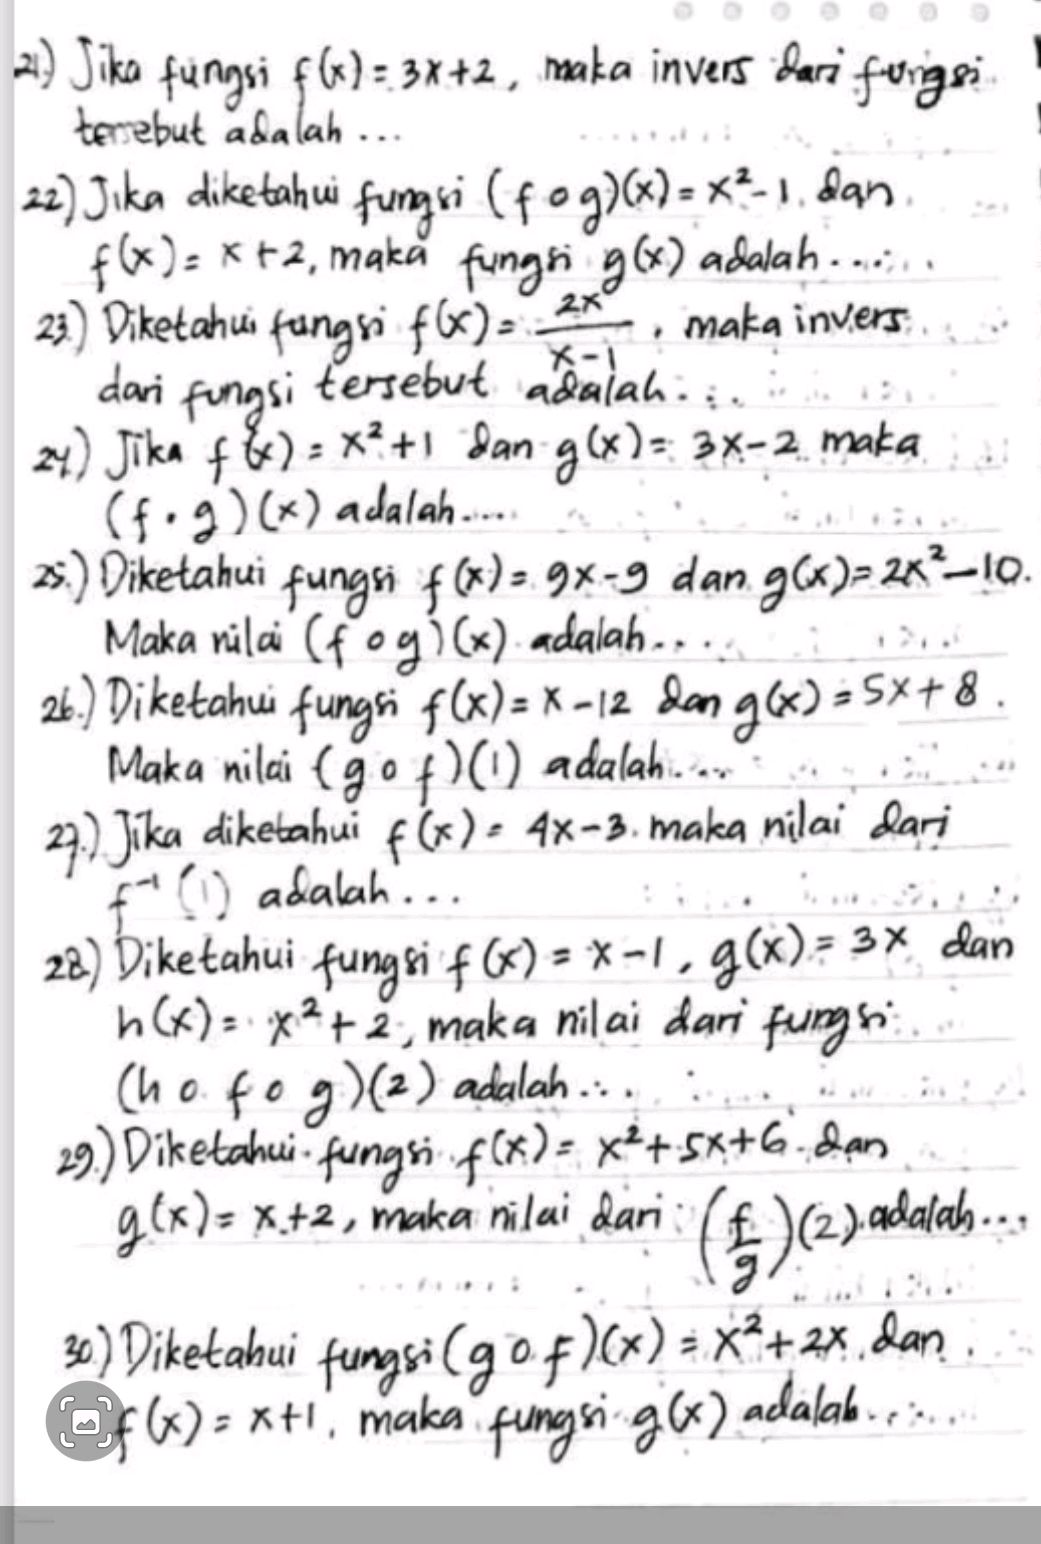 21.) Jika fungsi f(x) = 3x+2, maka invers dari fungsi
tersebut adalah ...
22.) Jika diketahui fungsi (f o g)(x) = x² - 1 dan
f(x) = x + 2, maka fungsi g(x) adalah ....
23.) Diketahui fungsi f(x) = 2x/(x-1), maka invers
dari fungsi tersebut adalah ...
24.) Jika f(x) = x² + 1 dan g(x) = 3x - 2 maka
(f • g)(x) adalah ....
25.) Diketahui fungsi f(x) = 9x - 9 dan g(x) = 2x² - 10.
Maka nilai (f o g)(x) adalah ...
26.) Diketahui fungsi f(x) = x - 12 dan g(x) = 5x + 8.
Maka nilai (g o f)(1) adalah ....
27.) Jika diketahui f(x) = 4x - 3. maka nilai dari
f⁻¹(1) adalah ...
28.) Diketahui fungsi f(x) = x - 1, g(x) = 3x dan
h(x) = x² + 2, maka nilai dari fungsi
(h o f o g)(2) adalah ...
29.) Diketahui fungsi f(x) = x² + 5x + 6 dan
g(x) = x + 2, maka nilai dari (f/g)(2) adalah ...
30.) Diketahui fungsi (g o f)(x) = x² + 2x dan
f(x) = x+1, maka fungsi g(x) adalah ....